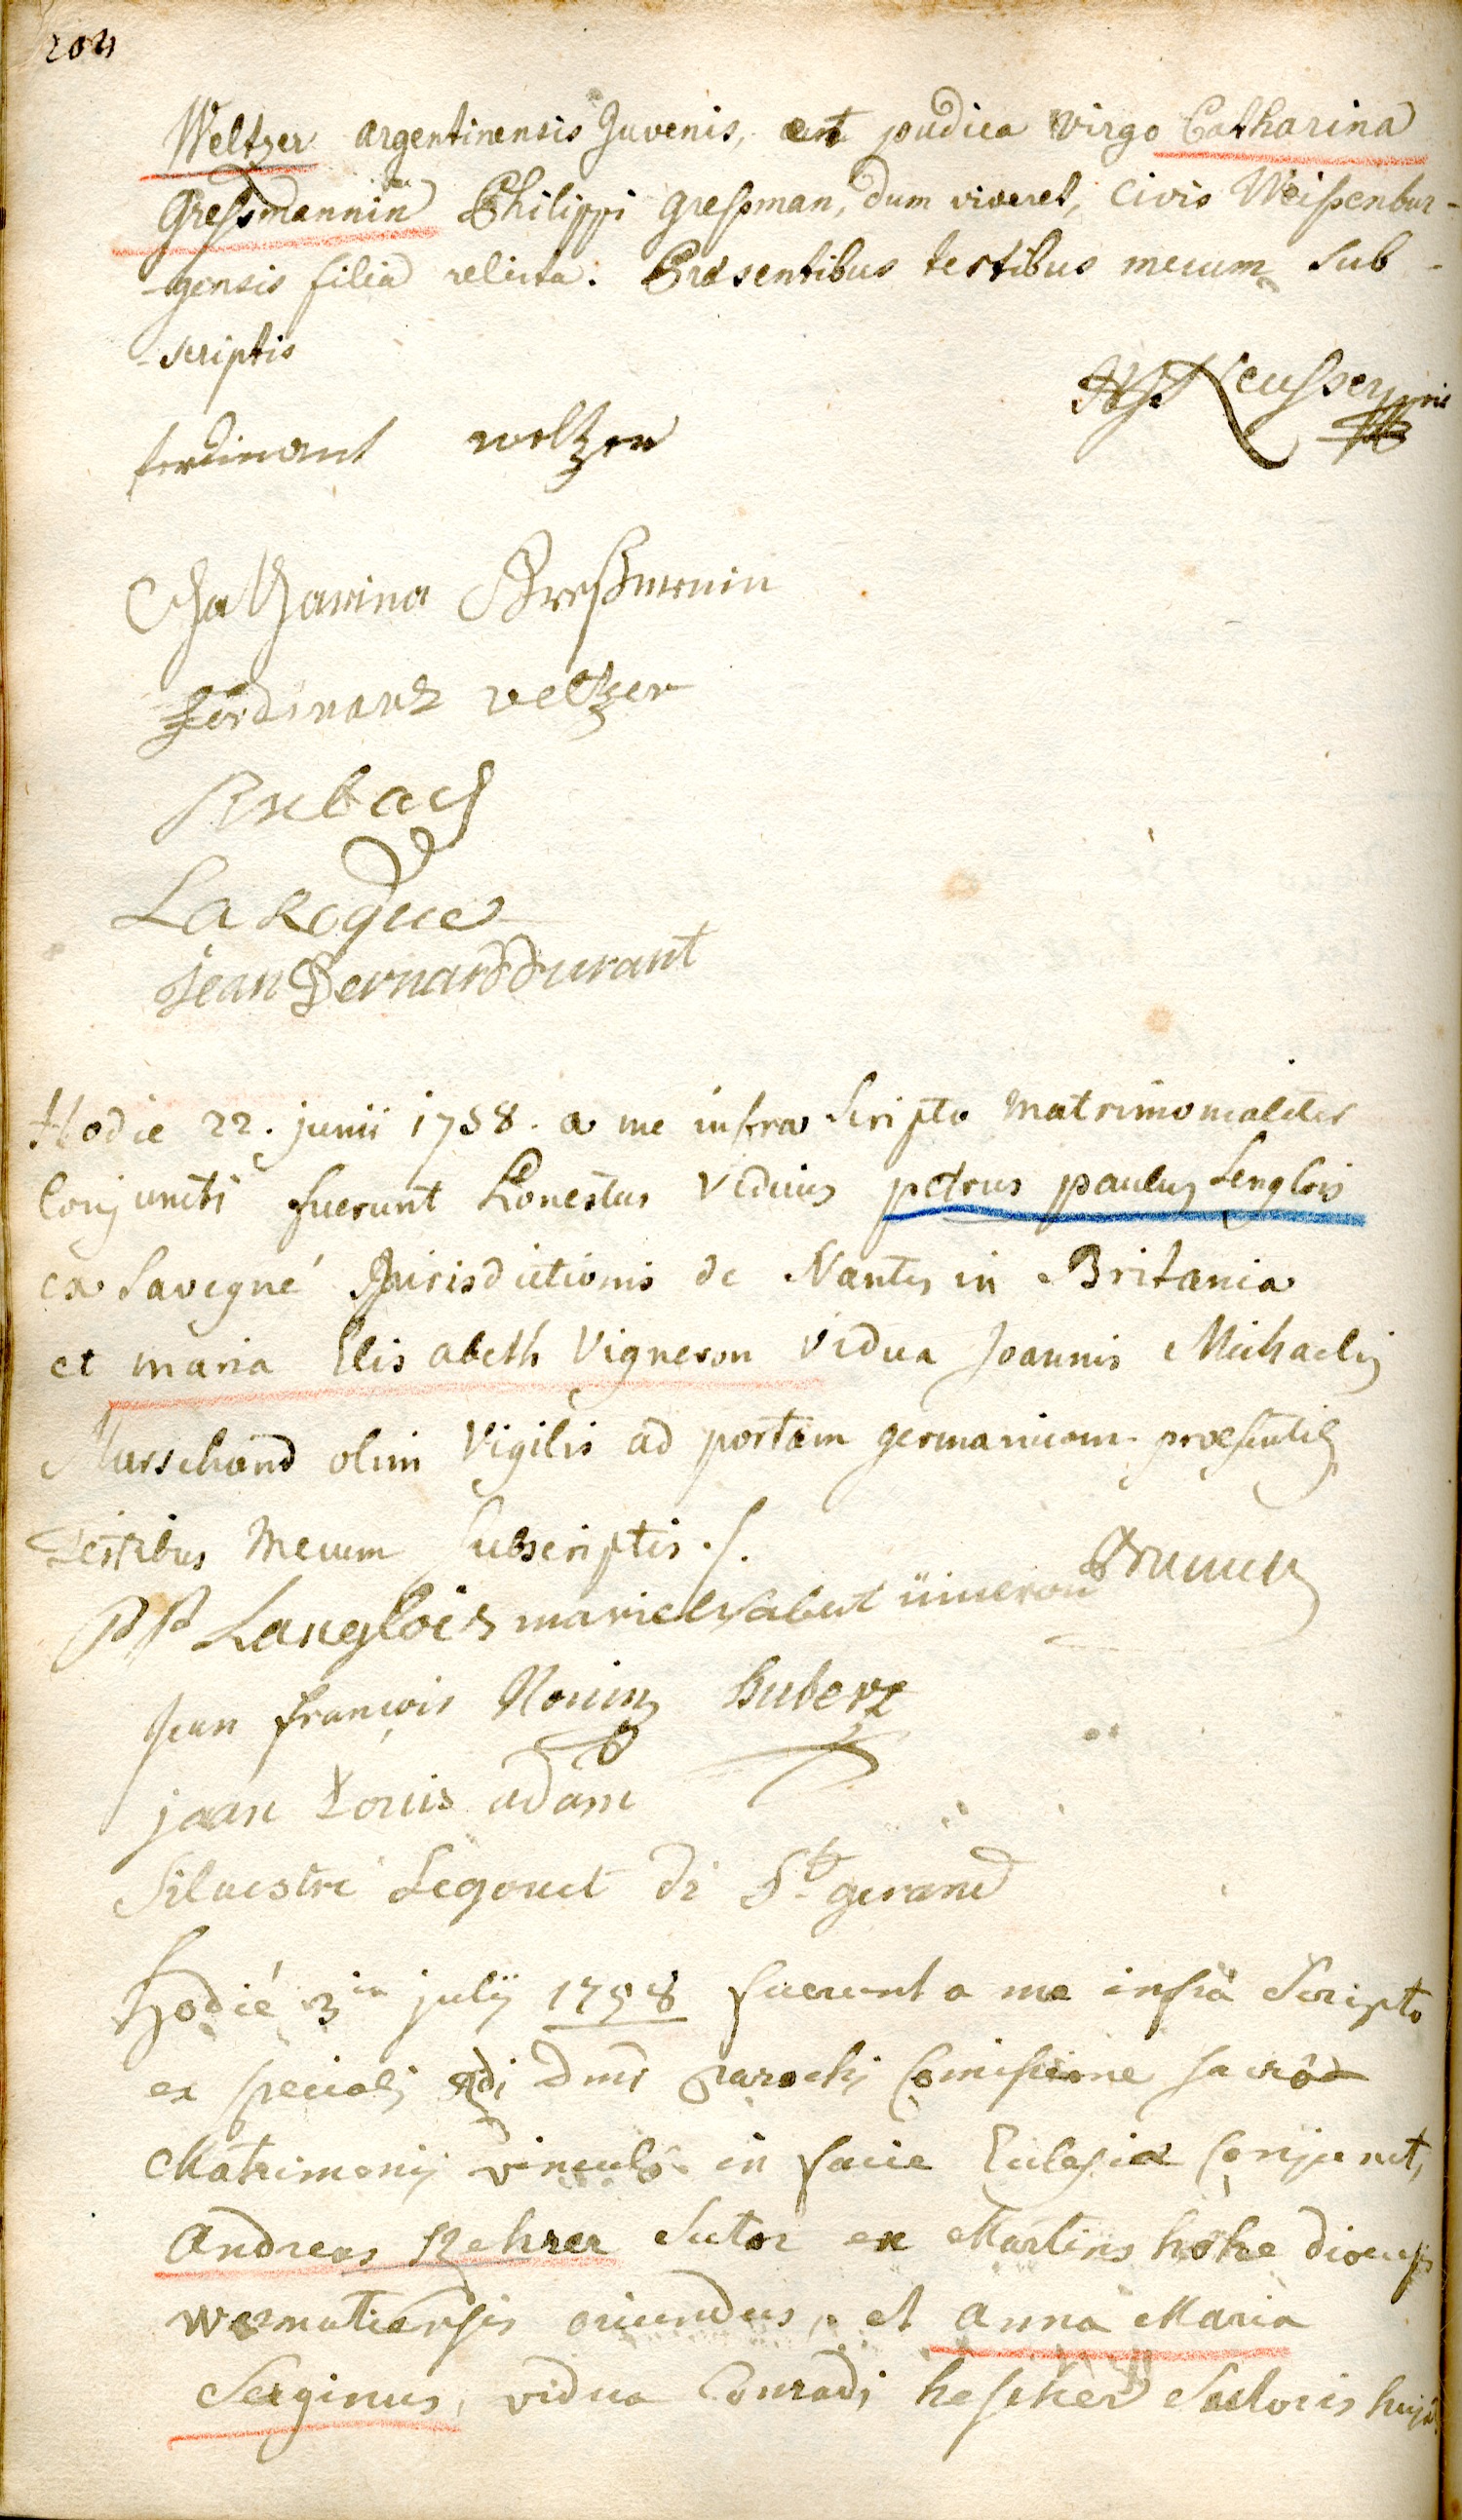 204
Weltzer argentinensis Juvenis, ent pudica virgo Catharina
Gressmannin Philippi gressman, dum viveret, civis Weissenbur-
-gensis filia relicta. Præsentibus testibus mecum sub-
-scriptis
ferdinant weltzer
Chatharina Gressmenin
Ferdinant veltzer
La Roque
Jean Bernard Durant
Hodie 22. junii 1758. a me infra scripto matrimonialiter
Conjuncti fuerunt honestus viduus petrus paulus Lenglois
ex Savegné Jurisdictionis de Nantes in Britania
et maria Elisabeth Vigneron vidua Joannis Michaelis
Marschand olim Vigilis ad portam germanicam præsentibus
Testibus Mecum subscriptis ./.
PP Langlois marie elisabeet üineron
Jean francois Huber
jean Louis adam
Siluestre Legouet di St gerand
Hodié 3ia julij 1758 fuerunt a me infra Scripto
ex speciali Rdi Dni parochi Comissione sacrô
Matrimonij vinculô in facie Eclesiæ conjunct,
Andreas Rehrer Sutor ex Martins höhe diocesis
wormatiensis oriundus, et Anna Maria
Serginus, vidua Conradi hescher Sutoris hujá